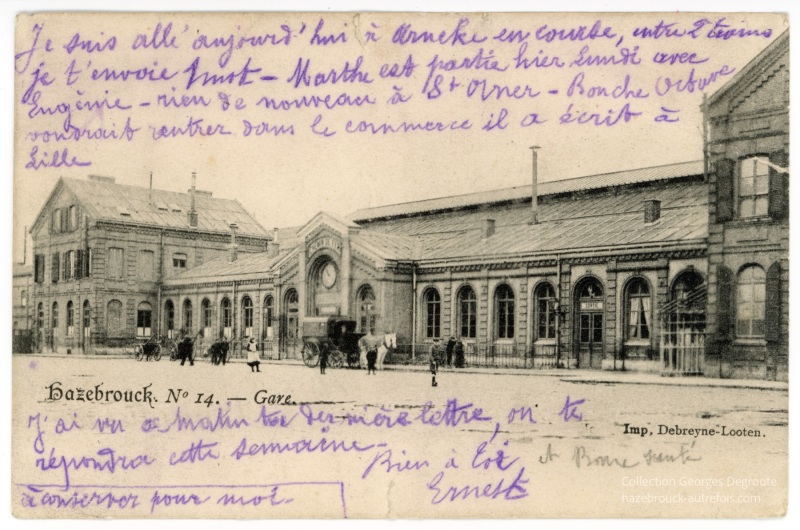 Je suis allé aujourd'hui à Arneke en course, entre 2 trains
je t'envoie 1 mot - Marthe est partie hier Lundi avec
Eugènie - rien de nouveau à St Omer - Bouche Octave
voudrait rentrer dans le commerce il a écrit à
Lille
Hazebrouck. No 14. — Gare.
Imp. Debreyne-Looten.
J'ai vu ce matin ta dernière lettre, on te
répondra cette semaine -
Bien à toi et Bonne santé
Ernest
à conserver pour moi -
Collection Georges Degroote
hazebrouck-autrefois.com